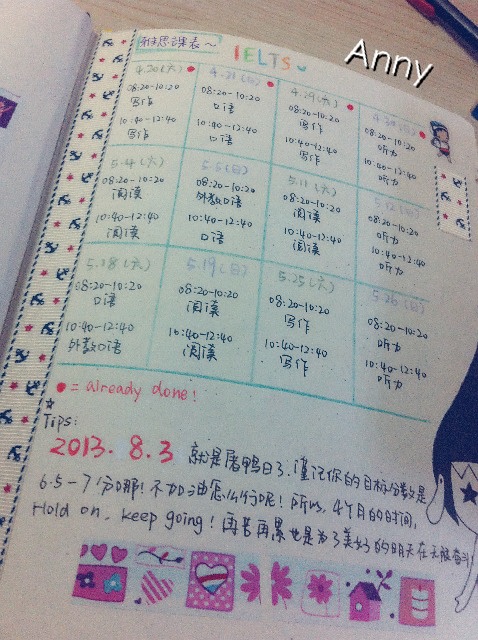 雅思课表～
IELTS
Anny
4.20(六) 4.21(日) 4.29(六) 4.30(日)
08:20-10:20 08:20-10:20 08:20-10:20 08:20-10:20
写作 口语 写作 听力
10:40-12:40 10:40-12:40 10:40-12:40 10:40-12:40
写作 口语 写作 听力
5.4(六) 5.5(日) 5.11(六) 5.12(日)
08:20-10:20 08:20-10:20 08:20-10:20 08:20-10:20
阅读 外教口语 阅读 听力
10:40-12:40 10:40-12:40 10:40-12:40 10:40-12:40
阅读 口语 阅读 听力
5.18(六) 5.19(日) 5.25(六) 5.26(日)
08:20-10:20 08:20-10:20 08:20-10:20 08:20-10:20
口语 阅读 写作 听力
10:40-12:40 10:40-12:40 10:40-12:40 10:40-12:40
外教口语 阅读 写作 听力
= already done!
Tips:
2013.8.3 就是屠鸭日了.谨记你的目标分数是
6.5-7分哪!不加油怎么行呢!所以,4个月的时间,
Hold on, keep going!再苦再累也是为了美好的明天在